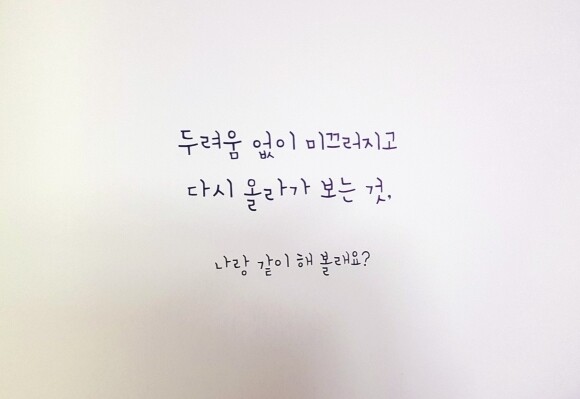 두려움 없이 미끄러지고
다시 올라가 보는 것,
나랑 같이 해 볼래요?